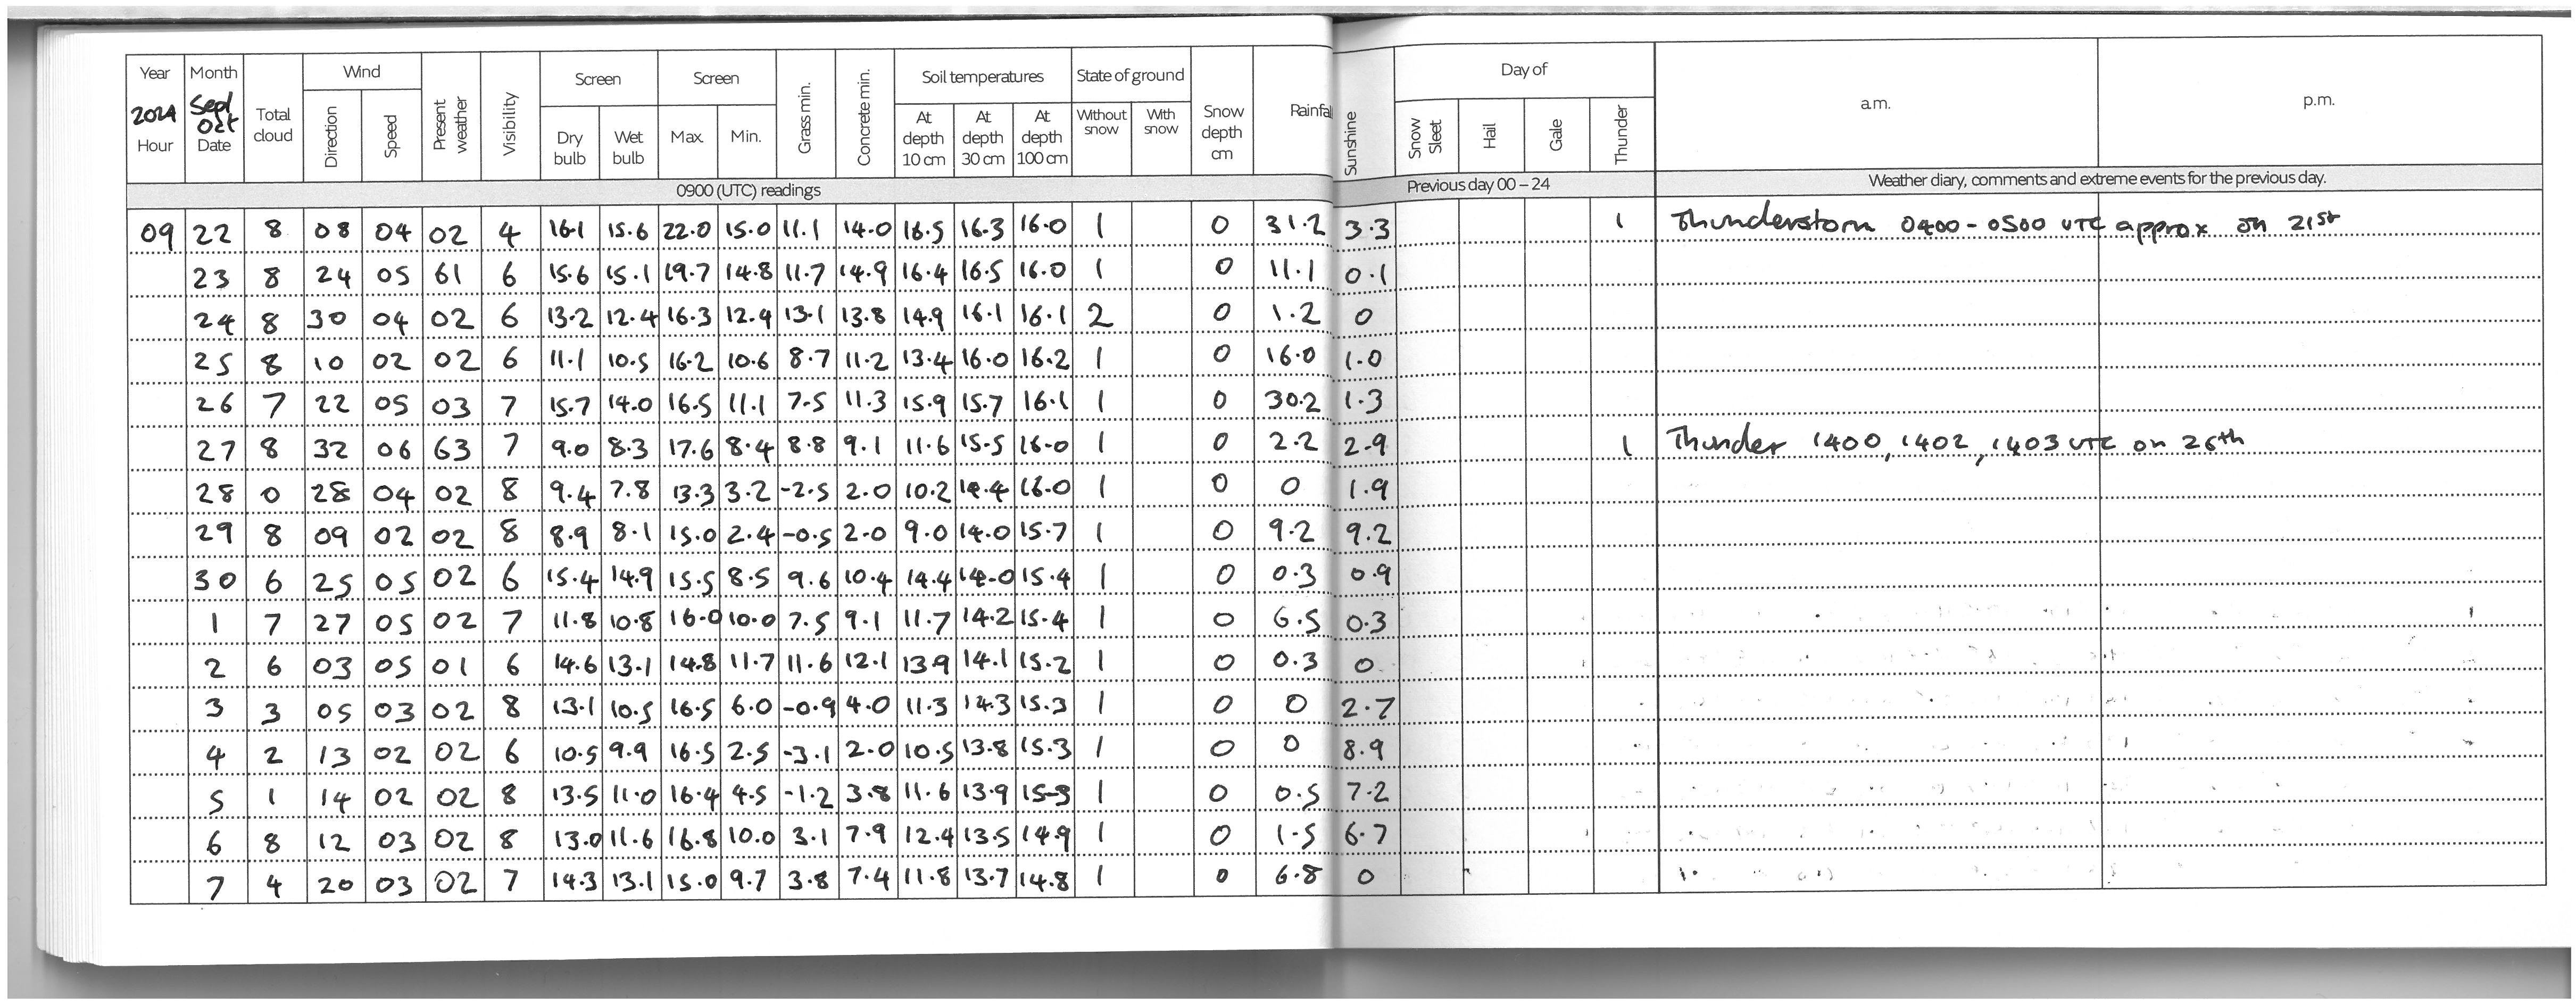 Year Month Total cloud Wind Present weather Visibility Screen Screen Grass min. Concrete min. Soil temperatures State of ground Snow depth cm Rainfal Sunshine Day of a.m. p.m.
2024 Sept Oct Direction Speed Dry bulb Wet bulb Max. Min. At depth 10 cm At depth 30 cm At depth 100 cm Without snow With snow Snow Sleet Hail Gale Thunder
Hour Date
0900 (UTC) readings Previous day 00 – 24 Weather diary, comments and extreme events for the previous day.
09 22 8 08 04 02 4 16.1 15.6 22.0 15.0 11.1 14.0 16.5 16.3 16.0 1 0 31.2 3.3 1 Thunderstorm 0400 - 0500 UTC approx on 21st
23 8 24 05 61 6 15.6 15.1 19.7 14.8 11.7 14.9 16.4 16.5 16.0 1 0 11.1 0.1
24 8 30 04 02 6 13.2 12.4 16.3 12.9 13.1 13.8 14.9 16.1 16.1 2 0 1.2 0
25 8 10 02 02 6 11.1 10.5 16.2 10.6 8.7 11.2 13.4 16.0 16.2 1 0 16.0 1.0
26 7 22 05 03 7 15.7 14.0 16.5 11.1 7.5 11.3 15.9 15.7 16.1 1 0 30.2 1.3
27 8 32 06 63 7 9.0 8.3 17.6 8.4 8.8 9.1 11.6 15.5 16.0 1 0 2.2 2.9 1 Thunder 1400, 1402, 1403 UTC on 26th
28 0 28 04 02 8 9.4 7.8 13.3 3.2 -2.5 2.0 10.2 14.4 16.0 1 0 0 1.9
29 8 09 02 02 8 8.9 8.1 15.0 2.4 -0.5 2.0 9.0 14.0 15.7 1 0 9.2 9.2
30 6 25 05 02 6 15.4 14.9 15.5 8.5 9.6 10.4 14.4 14.0 15.4 1 0 0.3 0.9
1 7 27 05 02 7 11.8 10.8 16.0 10.0 7.5 9.1 11.7 14.2 15.4 1 0 6.5 0.3
2 6 03 05 01 6 14.6 13.1 14.8 11.7 11.6 12.1 13.9 14.1 15.2 1 0 0.3 0
3 3 05 03 02 8 13.1 10.5 16.5 6.0 -0.9 4.0 11.3 14.3 15.3 1 0 0 2.7
4 2 13 02 02 6 10.5 9.9 16.5 2.5 -3.1 2.0 10.5 13.8 15.3 1 0 0 8.9
5 1 14 02 02 8 13.5 11.0 16.4 4.5 -1.2 3.8 11.6 13.9 15.3 1 0 0.5 7.2
6 8 12 03 02 8 13.0 11.6 16.8 10.0 3.1 7.9 12.4 13.5 14.9 1 0 1.5 6.7
7 4 20 03 02 7 14.3 13.1 15.0 9.7 3.8 7.4 11.8 13.7 14.8 1 0 6.8 0